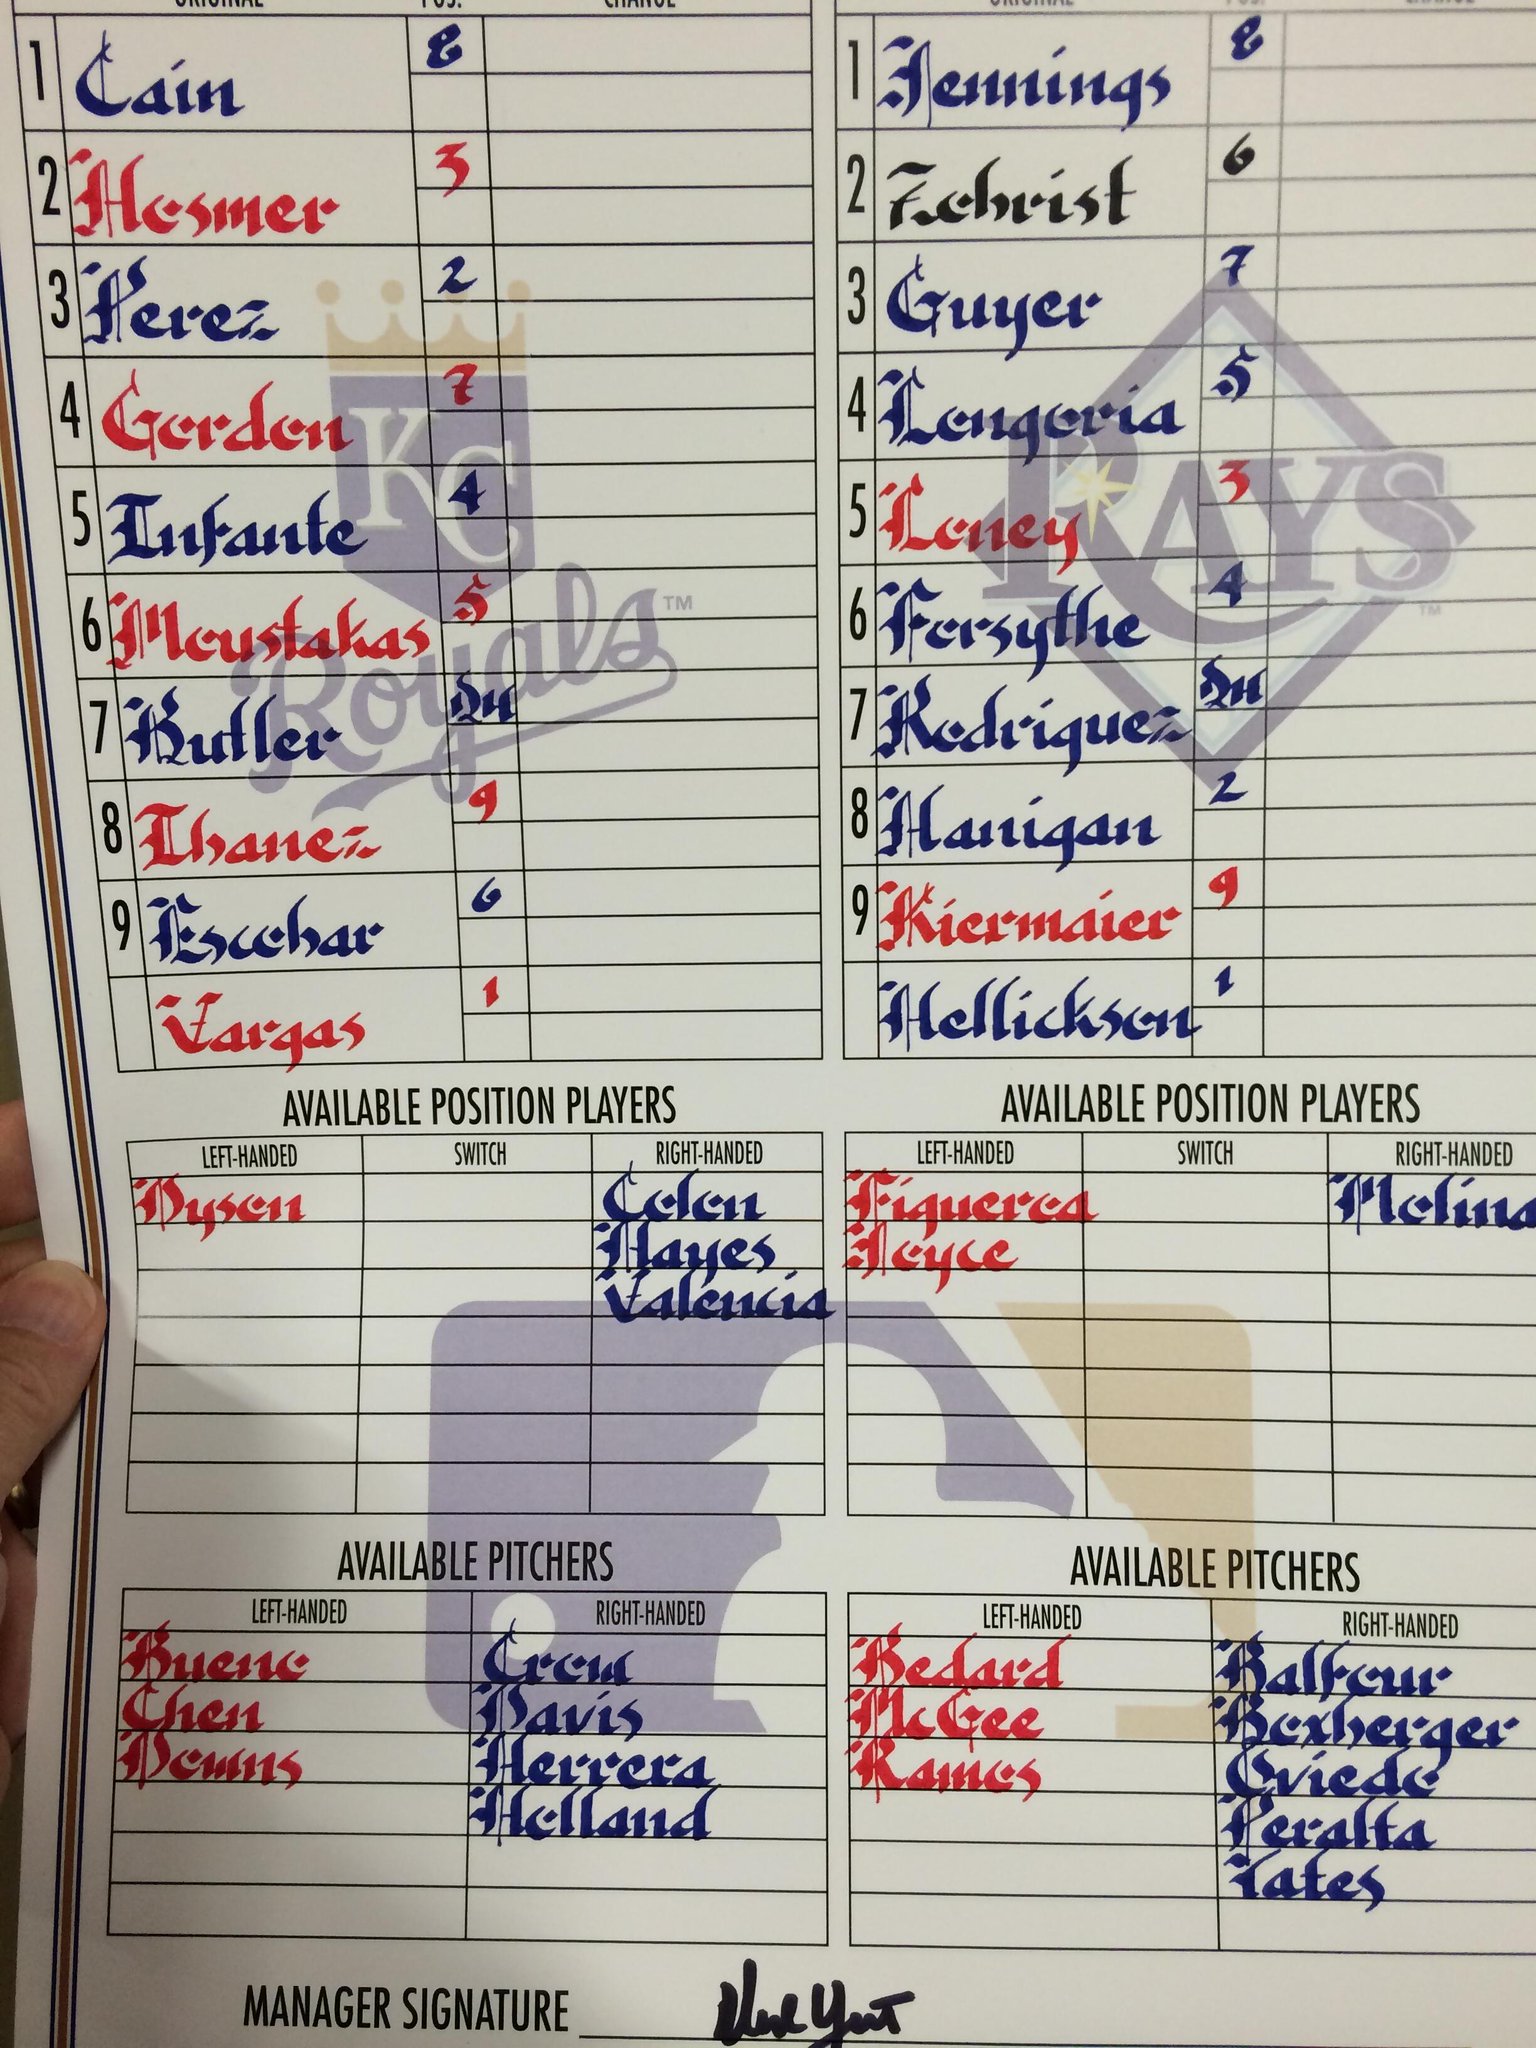 ORIGINAL POS. CHANGE
1 Cain 8
2 Hosmer 3
3 Perez 2
4 Gordon 7
5 Infante 4
6 Moustakas 5
7 Butler DH
8 Ibanez 9
9 Escobar 6
Vargas 1
KC
Royals™
AVAILABLE POSITION PLAYERS
LEFT-HANDED SWITCH RIGHT-HANDED
Dyson Colon
Hayes
Valencia
AVAILABLE PITCHERS
LEFT-HANDED RIGHT-HANDED
Bueno Crow
Chen Davis
Downs Herrera
Holland
ORIGINAL POS. CHANGE
1 Jennings 8
2 Zobrist 6
3 Guyer 7
4 Longoria 5
5 Loney 3
6 Forsythe 4
7 Rodriguez DH
8 Hanigan 2
9 Kiermaier 9
Hellickson 1
RAYS™
AVAILABLE POSITION PLAYERS
LEFT-HANDED SWITCH RIGHT-HANDED
Figueroa Molina
Joyce
AVAILABLE PITCHERS
LEFT-HANDED RIGHT-HANDED
Bedard Balfour
McGee Boxberger
Ramos Oviedo
Peralta
Yates
MANAGER SIGNATURE